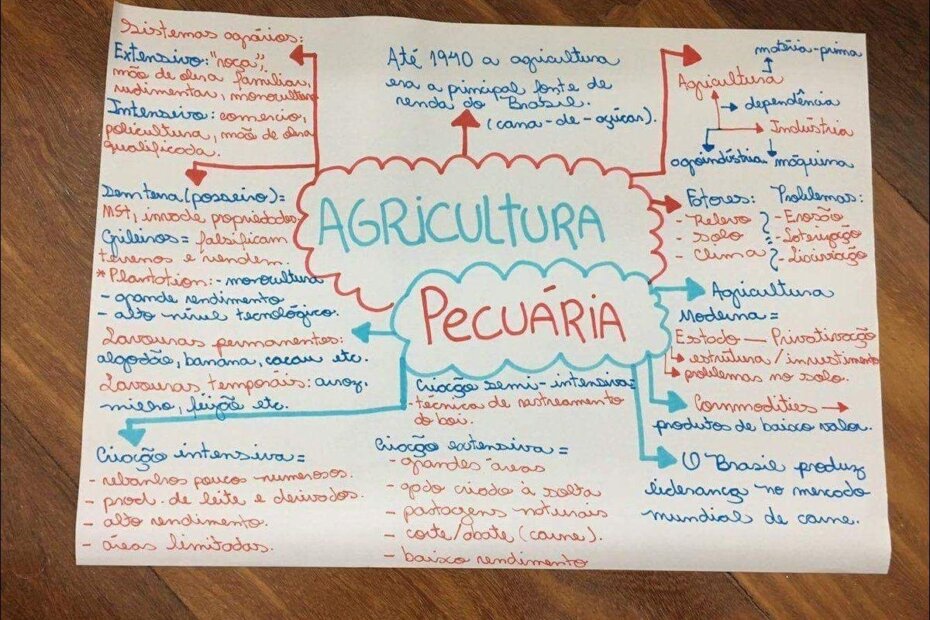 Sistemas agrários:
Extensivo: "roça",
mão de obra familiar,
rudimentar, monocultora
Intensivo: comercio,
policultura, mão de obra
qualificada.
Até 1940 a agricultura
era a principal fonte de
renda do Brasil.
(cana-de-açúcar).
matéria-prima
Agricultura
dependência
Indústria
agroindústria
máquina
AGRICULTURA
PECUÁRIA
Sem terra (posseiro) =
MST, invade propriedades
Grileiros = falsificam
terrenos e vendem.
* Plantation: - monocultura
- grande rendimento
- alto nível tecnológico.
Lavouras permanentes:
algodão, banana, cacau etc.
Lavouras temporais: arroz,
milho, feijão etc.
Fatores: Problemas:
- Relevo - Erosão
- solo - Laterização
- Clima - Lixiviação
Agricultura
Moderna =
Estado — Privativação
estrutura / investimento
problemas no solo.
Commodities
produtos de baixo valor.
O Brasil produz
liderança no mercado
mundial de carne.
Criação semi-intensiva =
- técnica de rastreamento
do boi.
Criação intensiva =
- rebanhos pouco numerosos.
- prod. de leite e derivados.
- alto rendimento.
- áreas limitadas.
Criação extensiva =
- grandes áreas
- gado criado à solta
- pastagens naturais
- corte/abate (carne).
- baixo rendimento